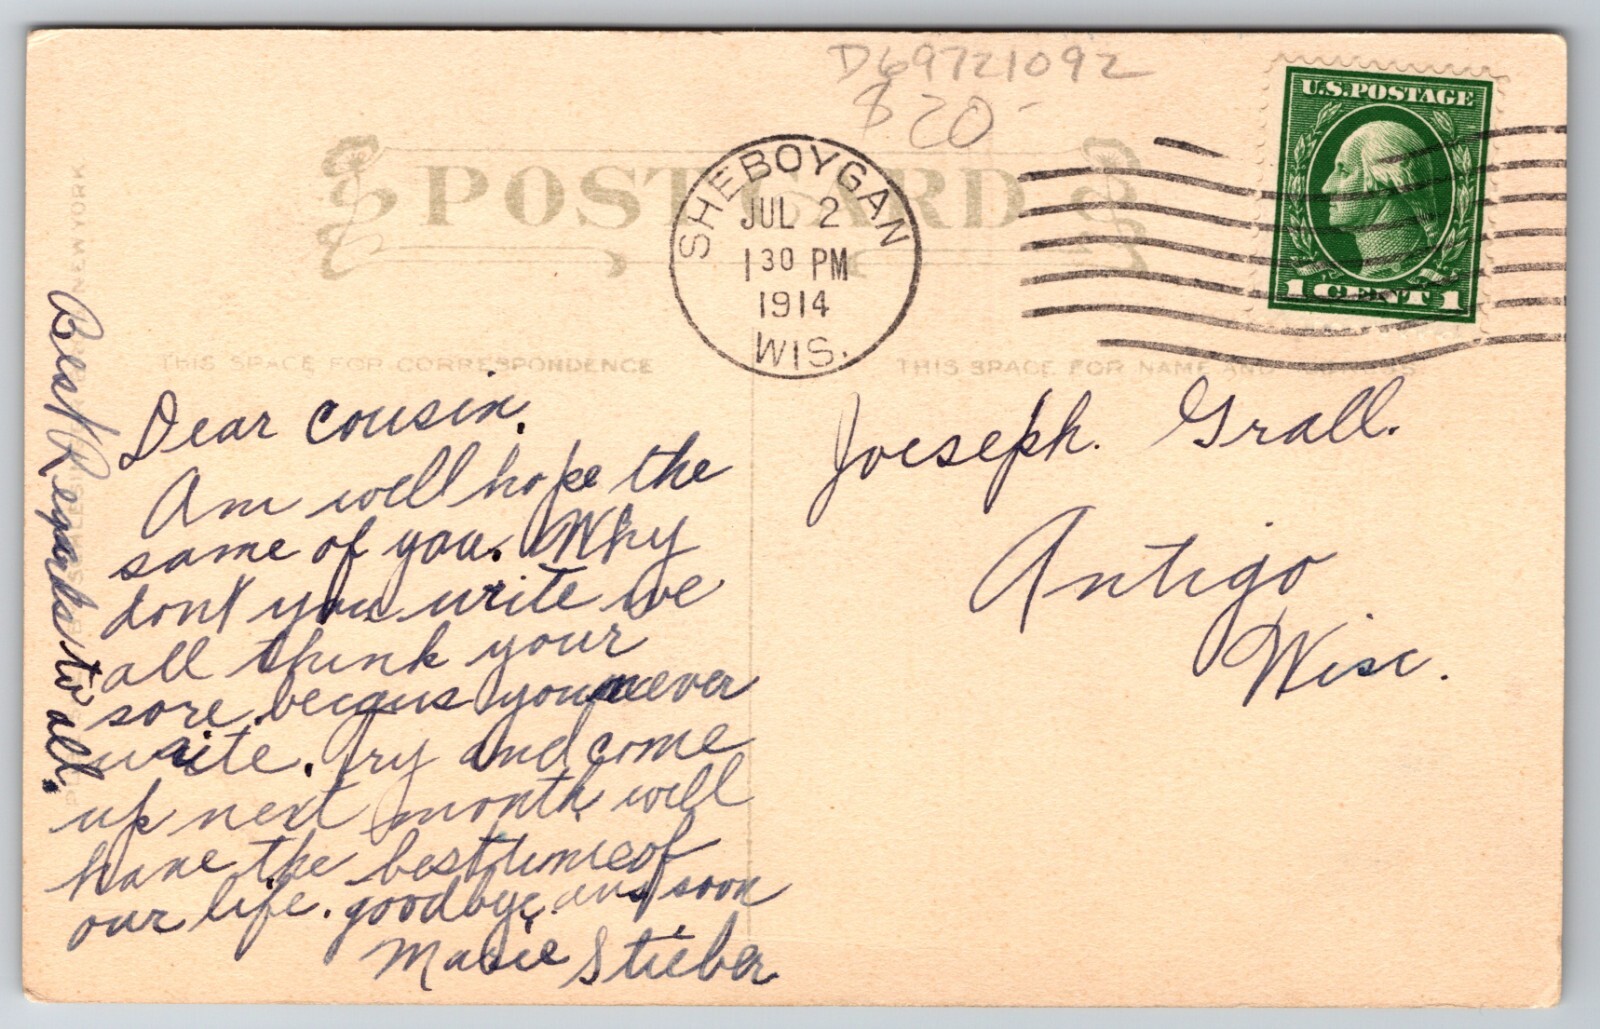 D69721092
$20-
POST CARD
U.S. POSTAGE
1 CENT 1
SHEBOYGAN
JUL 2
1 30 PM
1914
WIS.
THIS SPACE FOR CORRESPONDENCE
THIS SPACE FOR NAME AND
Dear cousin.
Am well hope the
same of you. Why
dont you write we
all think your
sore becaus you never
write. Try and come
up next month will
have the best time of
our life. goodbye, ans soon
Marie Stieber
Best Regards to all.
Joeseph. Grall.
Antigo
Wisc.
NEW YORK